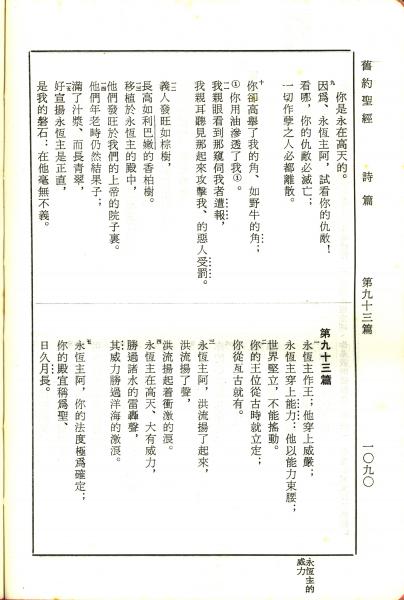 舊約聖經　詩篇　第九十三篇　一〇九〇
你是永在高天的。
九 因爲、永恆主阿，試看你的仇敵！
看哪，你的仇敵必滅亡；
一切作孽之人必都離散。
十 你卻高舉了我的角、如野牛的角；
①你用油滲透了我①。
一一 我親眼看到那窺伺我者遭報，
我親耳聽見那起來攻擊我、的惡人受罰。
一二 義人發旺如棕樹，
長高如利巴嫩的香柏樹。
一三 移植於永恆主的殿中，
他們發旺於我們的上帝的院子裏。
一四 他們年老時仍然結果子；
滿了汁漿、而長青翠，
一五 好宣揚永恆主是正直，
是我的磐石：在他毫無不義。
第九十三篇
一 永恆主作王；他穿上威嚴；
永恆主穿上能力：他以能力束腰；
世界堅立，不能搖動。
二 你的王位從古時就立定；
你從亙古就有。
三 永恆主阿，洪流揚了起來，
洪流揚了聲，
洪流揚起着衝激的浪。
四 永恆主在高天、大有威力，
勝過諸水的雷轟聲，
其威力勝過洋海的激浪。
五 永恆主阿，你的法度極爲確定；
你的殿宜稱爲聖、
日久月長。
永恆主的
威力